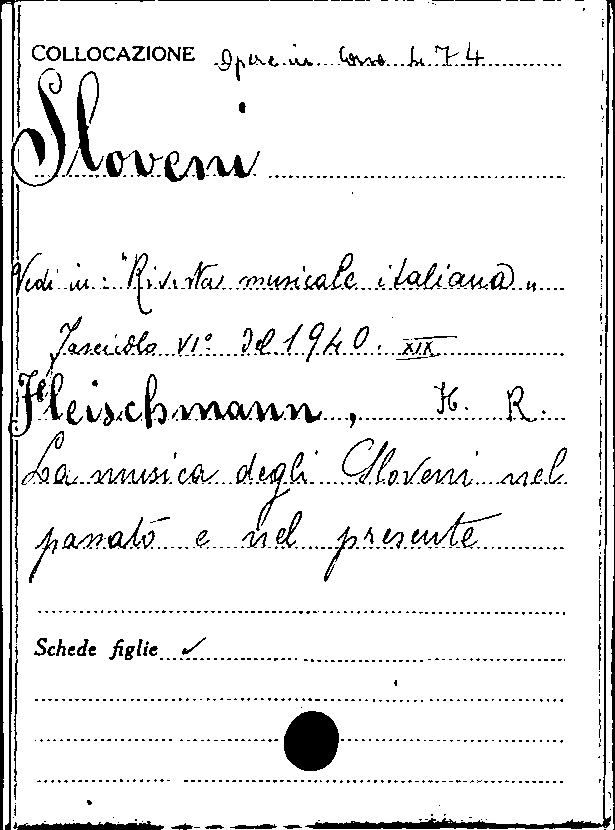 COLLOCAZIONE Opere in Corso L. 74
Sloveni
Vedi in: "Rivista musicale italiana"
Fascicolo VI° del 1940. XIX
Fleischmann, H. R.
La musica degli Sloveni nel
passato e nel presente
Schede figlie ✓